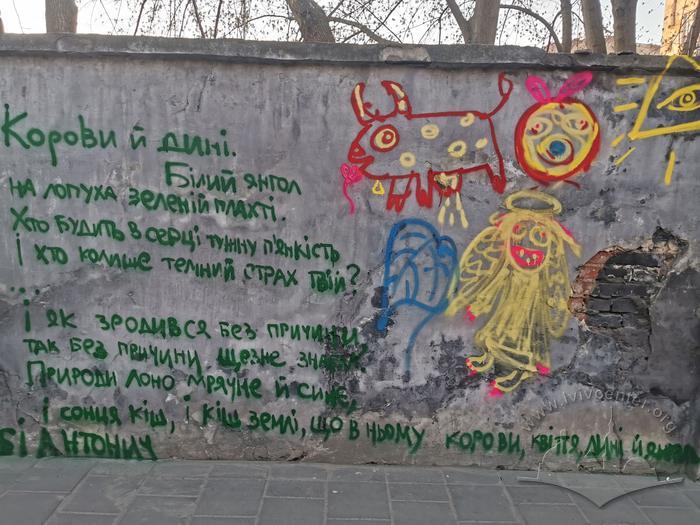 Корови й дині.
Білий янгол
на лопуха зеленій плахті.
Хто будить в серці тужну п'янкість
і хто колише темний страх твій?
...
і як зродився без причини
так без причини щезне
Природи лоно мрячне й синє,
і сонця кіш, і кіш землі, що в ньому корови, квіття, дині й
БІ АНТОНИЧ
www.lvivcenter.org